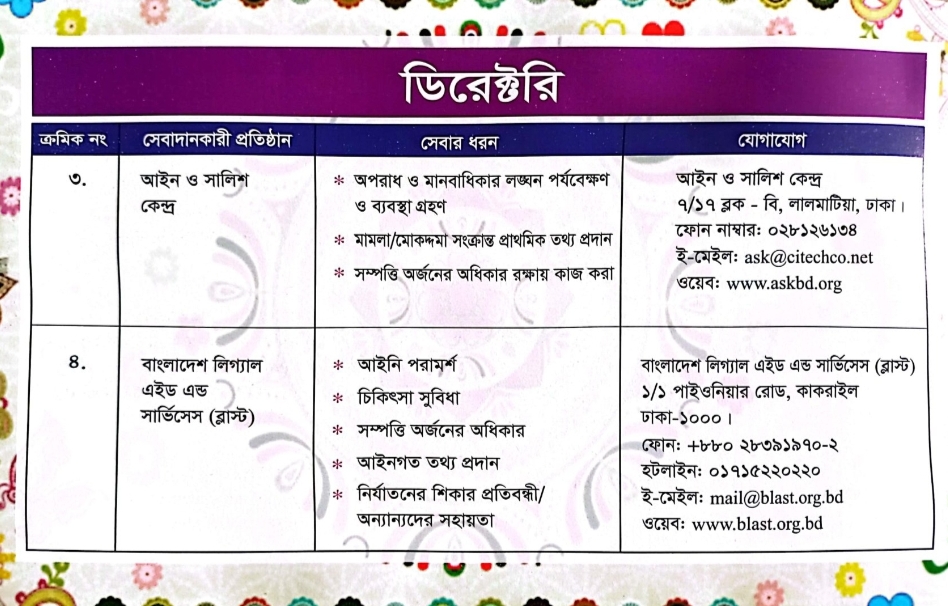 ডিরেক্টরি
ক্রমিক নং
সেবাদানকারী প্রতিষ্ঠান
সেবার ধরন
যোগাযোগ
৩.
আইন ও সালিশ
কেন্দ্র
* অপরাধ ও মানবাধিকার লঙ্ঘন পর্যবেক্ষণ
ও ব্যবস্থা গ্রহণ
* মামলা/মোকদ্দমা সংক্রান্ত প্রাথমিক তথ্য প্রদান
* সম্পত্তি অর্জনের অধিকার রক্ষায় কাজ করা
আইন ও সালিশ কেন্দ্র
৭/১৭ ব্লক - বি, লালমাটিয়া, ঢাকা।
ফোন নাম্বার: ০২৮১২৬১৩৪
ই-মেইল: ask@citechco.net
ওয়েব: www.askbd.org
৪.
বাংলাদেশ লিগ্যাল
এইড এন্ড
সার্ভিসেস (ব্লাস্ট)
* আইনি পরামর্শ
* চিকিৎসা সুবিধা
* সম্পত্তি অর্জনের অধিকার
* আইনগত তথ্য প্রদান
* নির্যাতনের শিকার প্রতিবন্ধী/
অন্যান্যদের সহায়তা
বাংলাদেশ লিগ্যাল এইড এন্ড সার্ভিসেস (ব্লাস্ট)
১/১ পাইওনিয়ার রোড, কাকরাইল
ঢাকা-১০০০।
ফোন: +৮৮০ ২৮৩৯১৯৭০-২
হটলাইন: ০১৭১৫২২০২২০
ই-মেইল: mail@blast.org.bd
ওয়েব: www.blast.org.bd